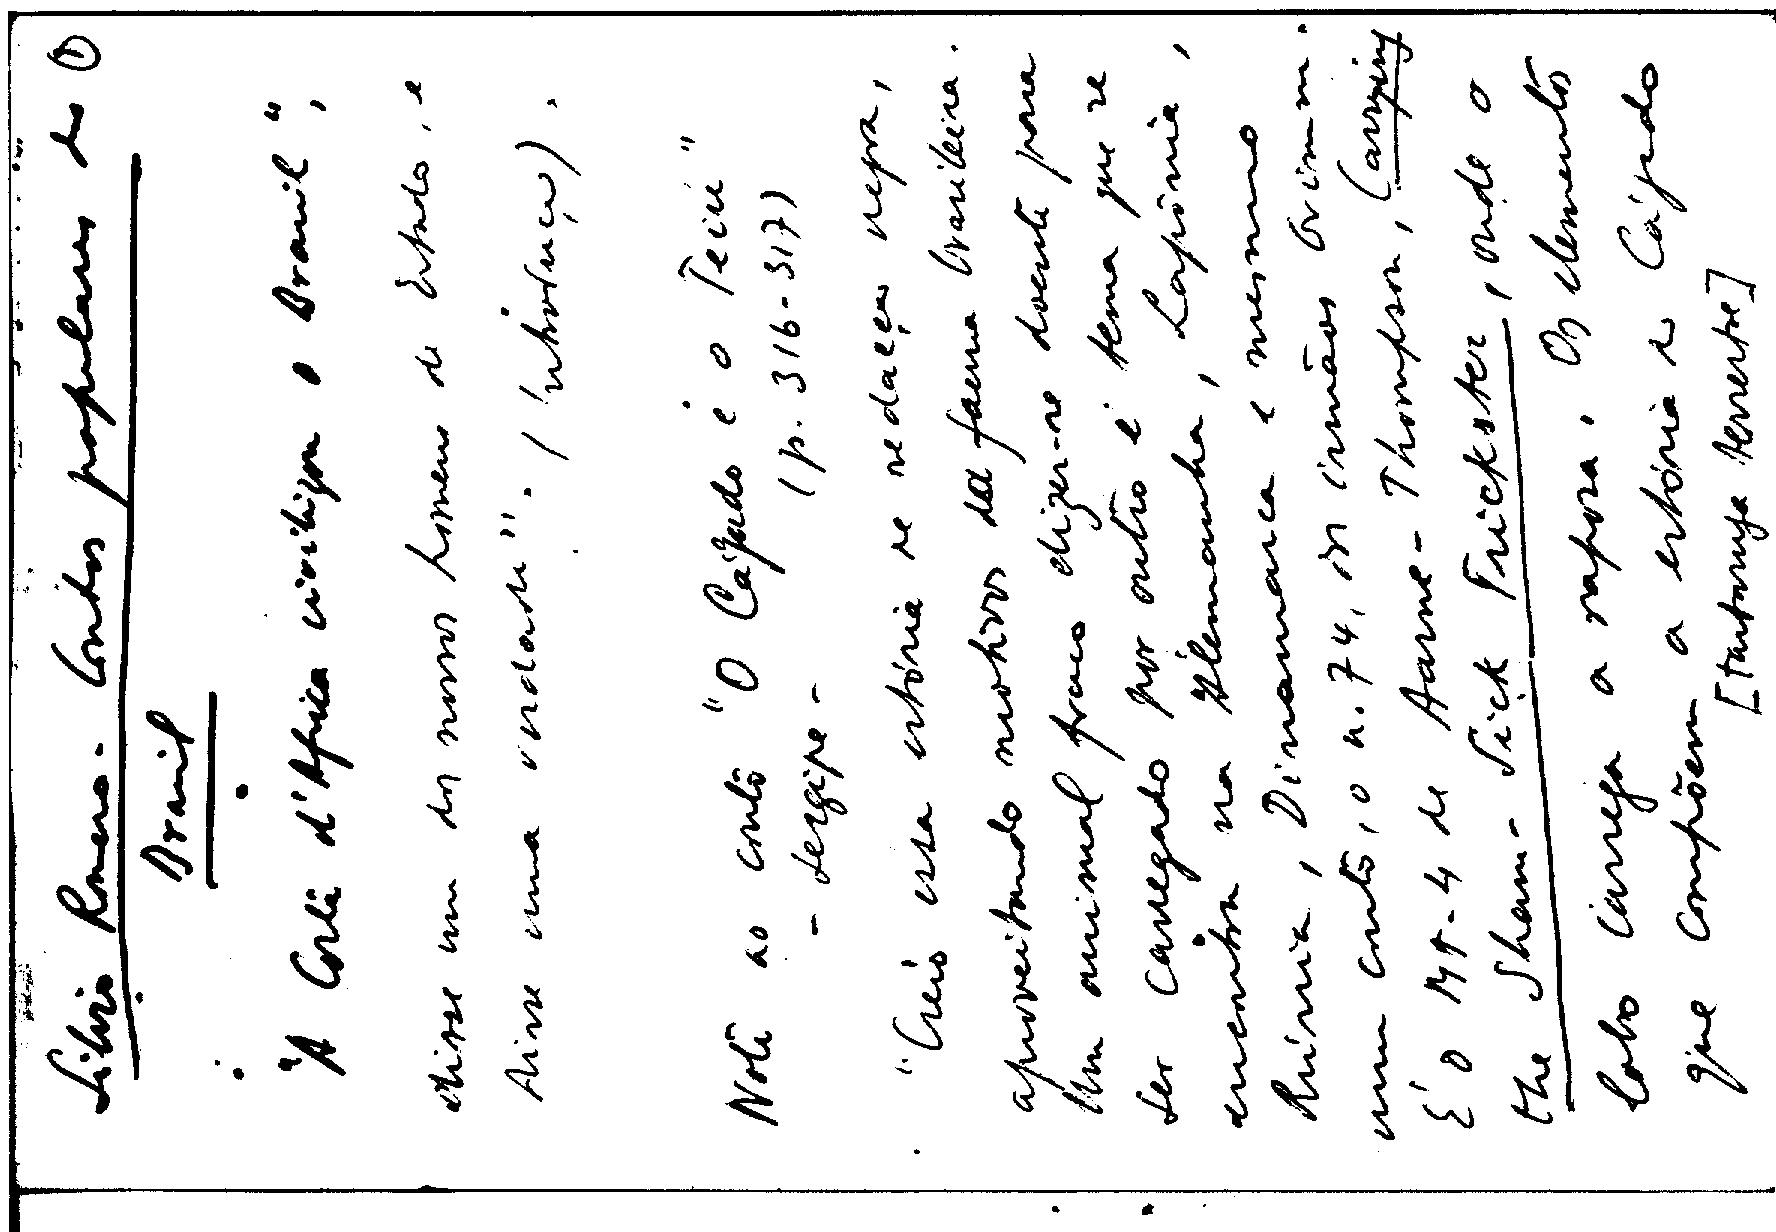 Sílvio Romero - Contos populares do ①
Brasil
"A Costa d'Africa civilizou o Brasil",
disse um dos nossos homens de Estado, e
disse uma verdade". (Introdução).
Nota ao conto "O Cágado e o Teiú"
- Sergipe - (p. 316-317)
"Creio essa estória de redação negra,
aproveitando motivos da fauna brasileira.
Um animal fraco dizer-se doente para
ser carregado por outro é tema que se
encontra na Alemanha, Lapônia,
Rússia, Dinamarca e mesmo
num conto, o n. 74, dos irmãos Grimm.
É o Mt-4 de Aarne-Thompson, Carrying
the Sham-Sick Trickster, onde o
lobo carrega a raposa. Os elementos
que compõem a estória do Cágado
[tartaruga terrestre]